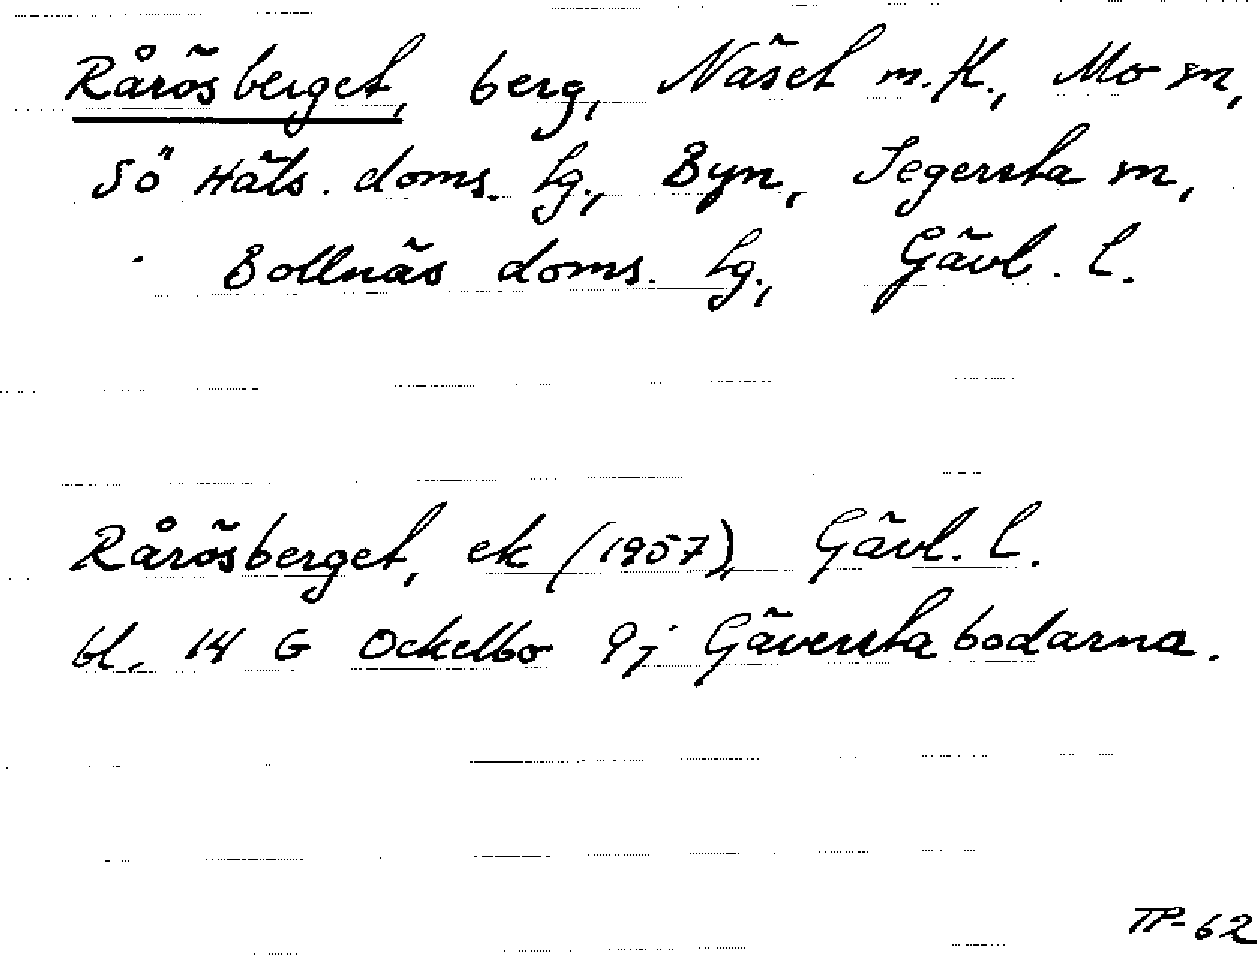 Rårösberget, berg, Näset m.fl., Mo sn,
Sö Häls. doms. lg., Byn, Segersta sn,
Bollnäs doms. lg., Gävl. l.
Rårösberget, ek (1957), Gävl. l.
bl. 14 G Ockelbo 9j Gäverstabodarna.
TP-62